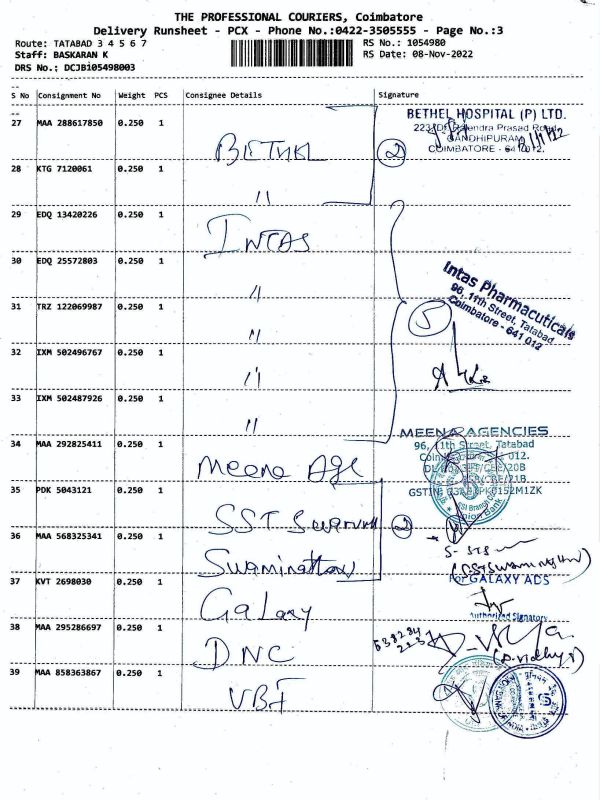 THE PROFESSIONAL COURIERS, Coimbatore
Delivery Runsheet - PCX - Phone No.:0422-3505555 - Page No.:3
Route: TATABAD 3 4 5 6 7
RS No.: 1054980
Staff: BASKARAN K
RS Date: 08-Nov-2022
DRS No.: DCJBi05498003
S No Consignment No Weight PCS Consignee Details Signature
27 MAA 288617850 0.250 1 BETHEL
BETHEL HOSPITAL (P) LTD.
223, Dr. Rajendra Prasad Road,
GANDHIPURAM,
COIMBATORE - 641 012.
2
28 KTG 7120061 0.250 1 "
29 EDQ 13420226 0.250 1 INTAS
30 EDQ 25572803 0.250 1 "
Intas Pharmaceuticals
96, 11th Street, Tatabad
Coimbatore - 641 012
31 TRZ 122069987 0.250 1 "
5
32 IXM 502496767 0.250 1 "
33 IXM 502487926 0.250 1 "
MEENA AGENCIES
96, 11th Street, Tatabad
012.
34 MAA 292825411 0.250 1 Meena Age
35 PDK 5043121 0.250 1 SST
2
36 MAA 568325341 0.250 1 Swaminathan
37 KVT 2698030 0.250 1 Galaxy
For GALAXY ADS
Authorized Signatory
38 MAA 295286697 0.250 1 DNC
39 MAA 858363867 0.250 1 VBI